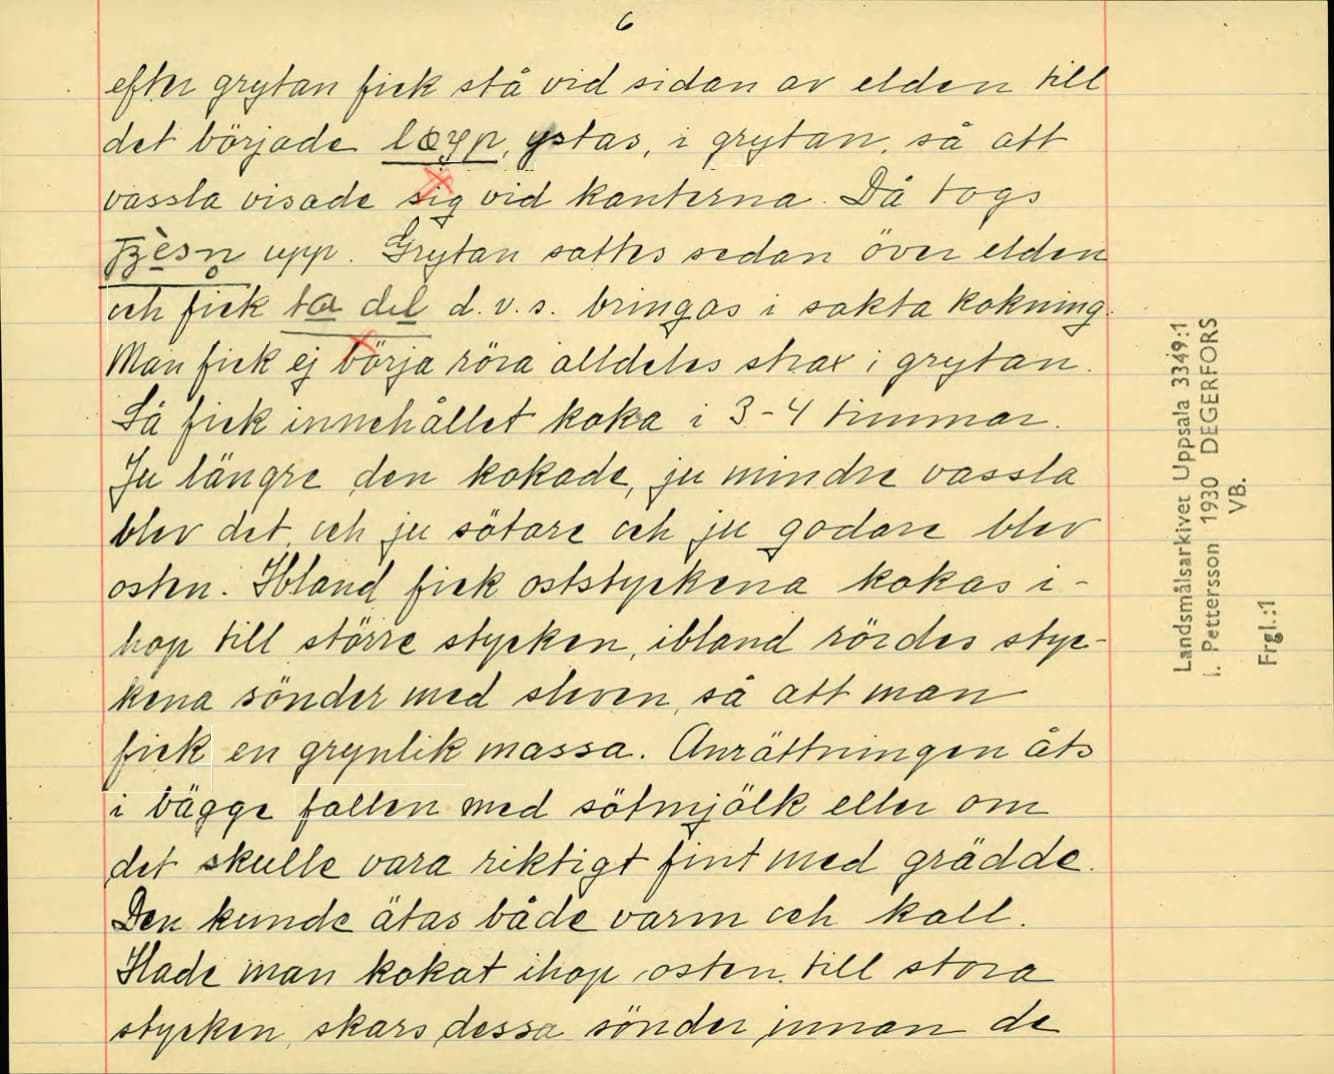 6
efter grytan fick stå vid sidan av elden till
det började löyp, ystas, i grytan, så att
vassla visade sig vid kanterna. Då togs
upp. Grytan sattes sedan över elden
och fick ta del d.v.s. bringas i sakta kokning.
Man fick ej börja röra alldeles strax i grytan.
Så fick innehållet koka i 3-4 timmar.
Ju längre den kokade, ju mindre vassla
blev det, och ju sötare och ju godare blev
osten. Ibland fick oststyckena kokas i-
hop till större stycken, ibland rördes styc-
kena sönder med sleven, så att man
fick en grynlik massa. Anrättningen åts
i bägge fallen med sötmjölk eller om
det skulle vara riktigt fint med grädde.
Den kunde ätas både varm och kall.
Hade man kokat ihop osten till stora
stycken, skars dessa sönder innan de
Landsmålsarkivet Uppsala 3349:1
I. Pettersson 1930 DEGERFORS
VB.
Frgl.:1